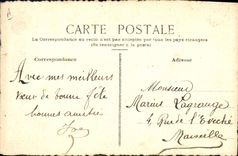 CARTE POSTALE
La Correspondance au recto n'est pas acceptée par tous les pays étrangers
(Se renseigner à la poste)
Correspondance
Adresse
Avec mes meilleurs
vœux de bonne fête
bonnes amitiés
Monsieur
Marius Lagrange
4 Rue de l'Evêché
Marseille